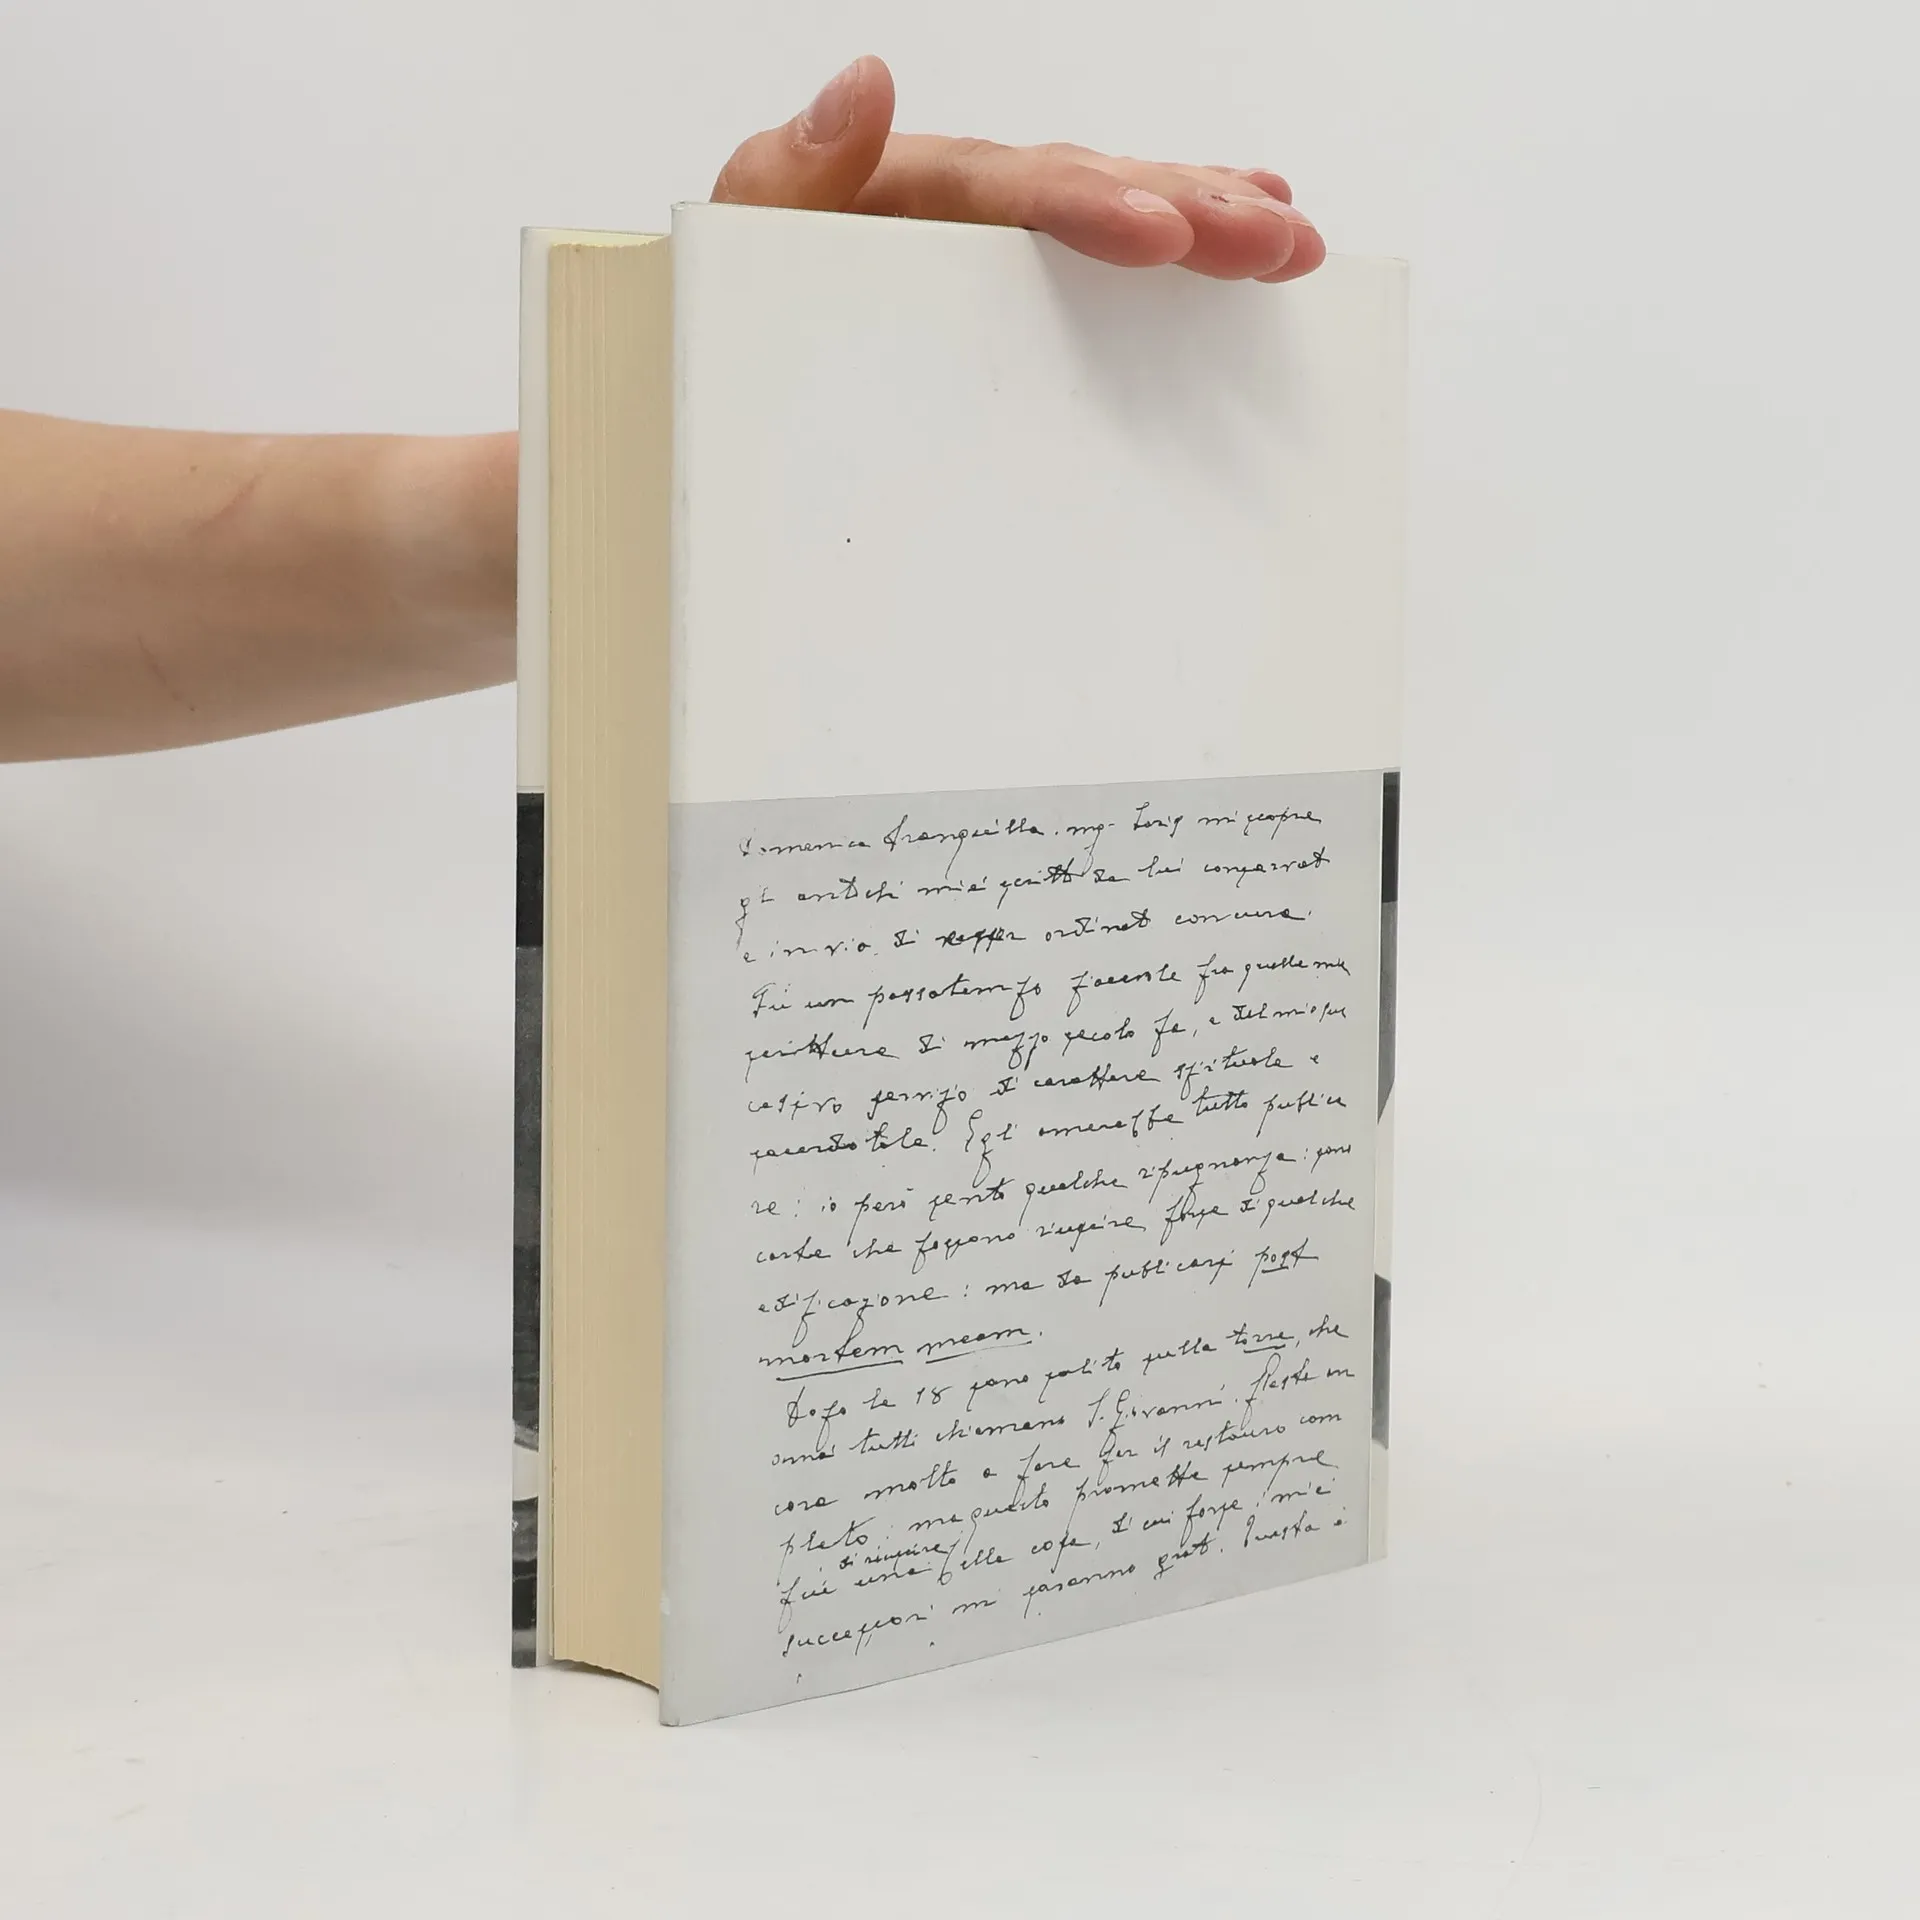 Domenica tranquilla. mgr Loris mi scopre
gli antichi miei scritti da lui conservati
e in via di esser ordinati con cura.
Fu un passatempo piacevole fra quelle mie
scritture di mezzo secolo fa, e del mio suc
cesivo servizio di carattere spirituale e
sacerdotale. Egli amerebbe tutto publica
re: io però sento qualche ripugnanza: sono
carte che possono riuscire forse di qualche
edificazione: ma da publicarsi post
mortem meam.
Dopo le 18 sono salito sulla torre, che
ormai tutti chiamano S. Giovanni. Resta an
cora molto a fare per il restauro com
pleto: ma questo promette sempre
di riuscire
più una bella cosa, di cui forse i miei
successori mi saranno grati. Questa è